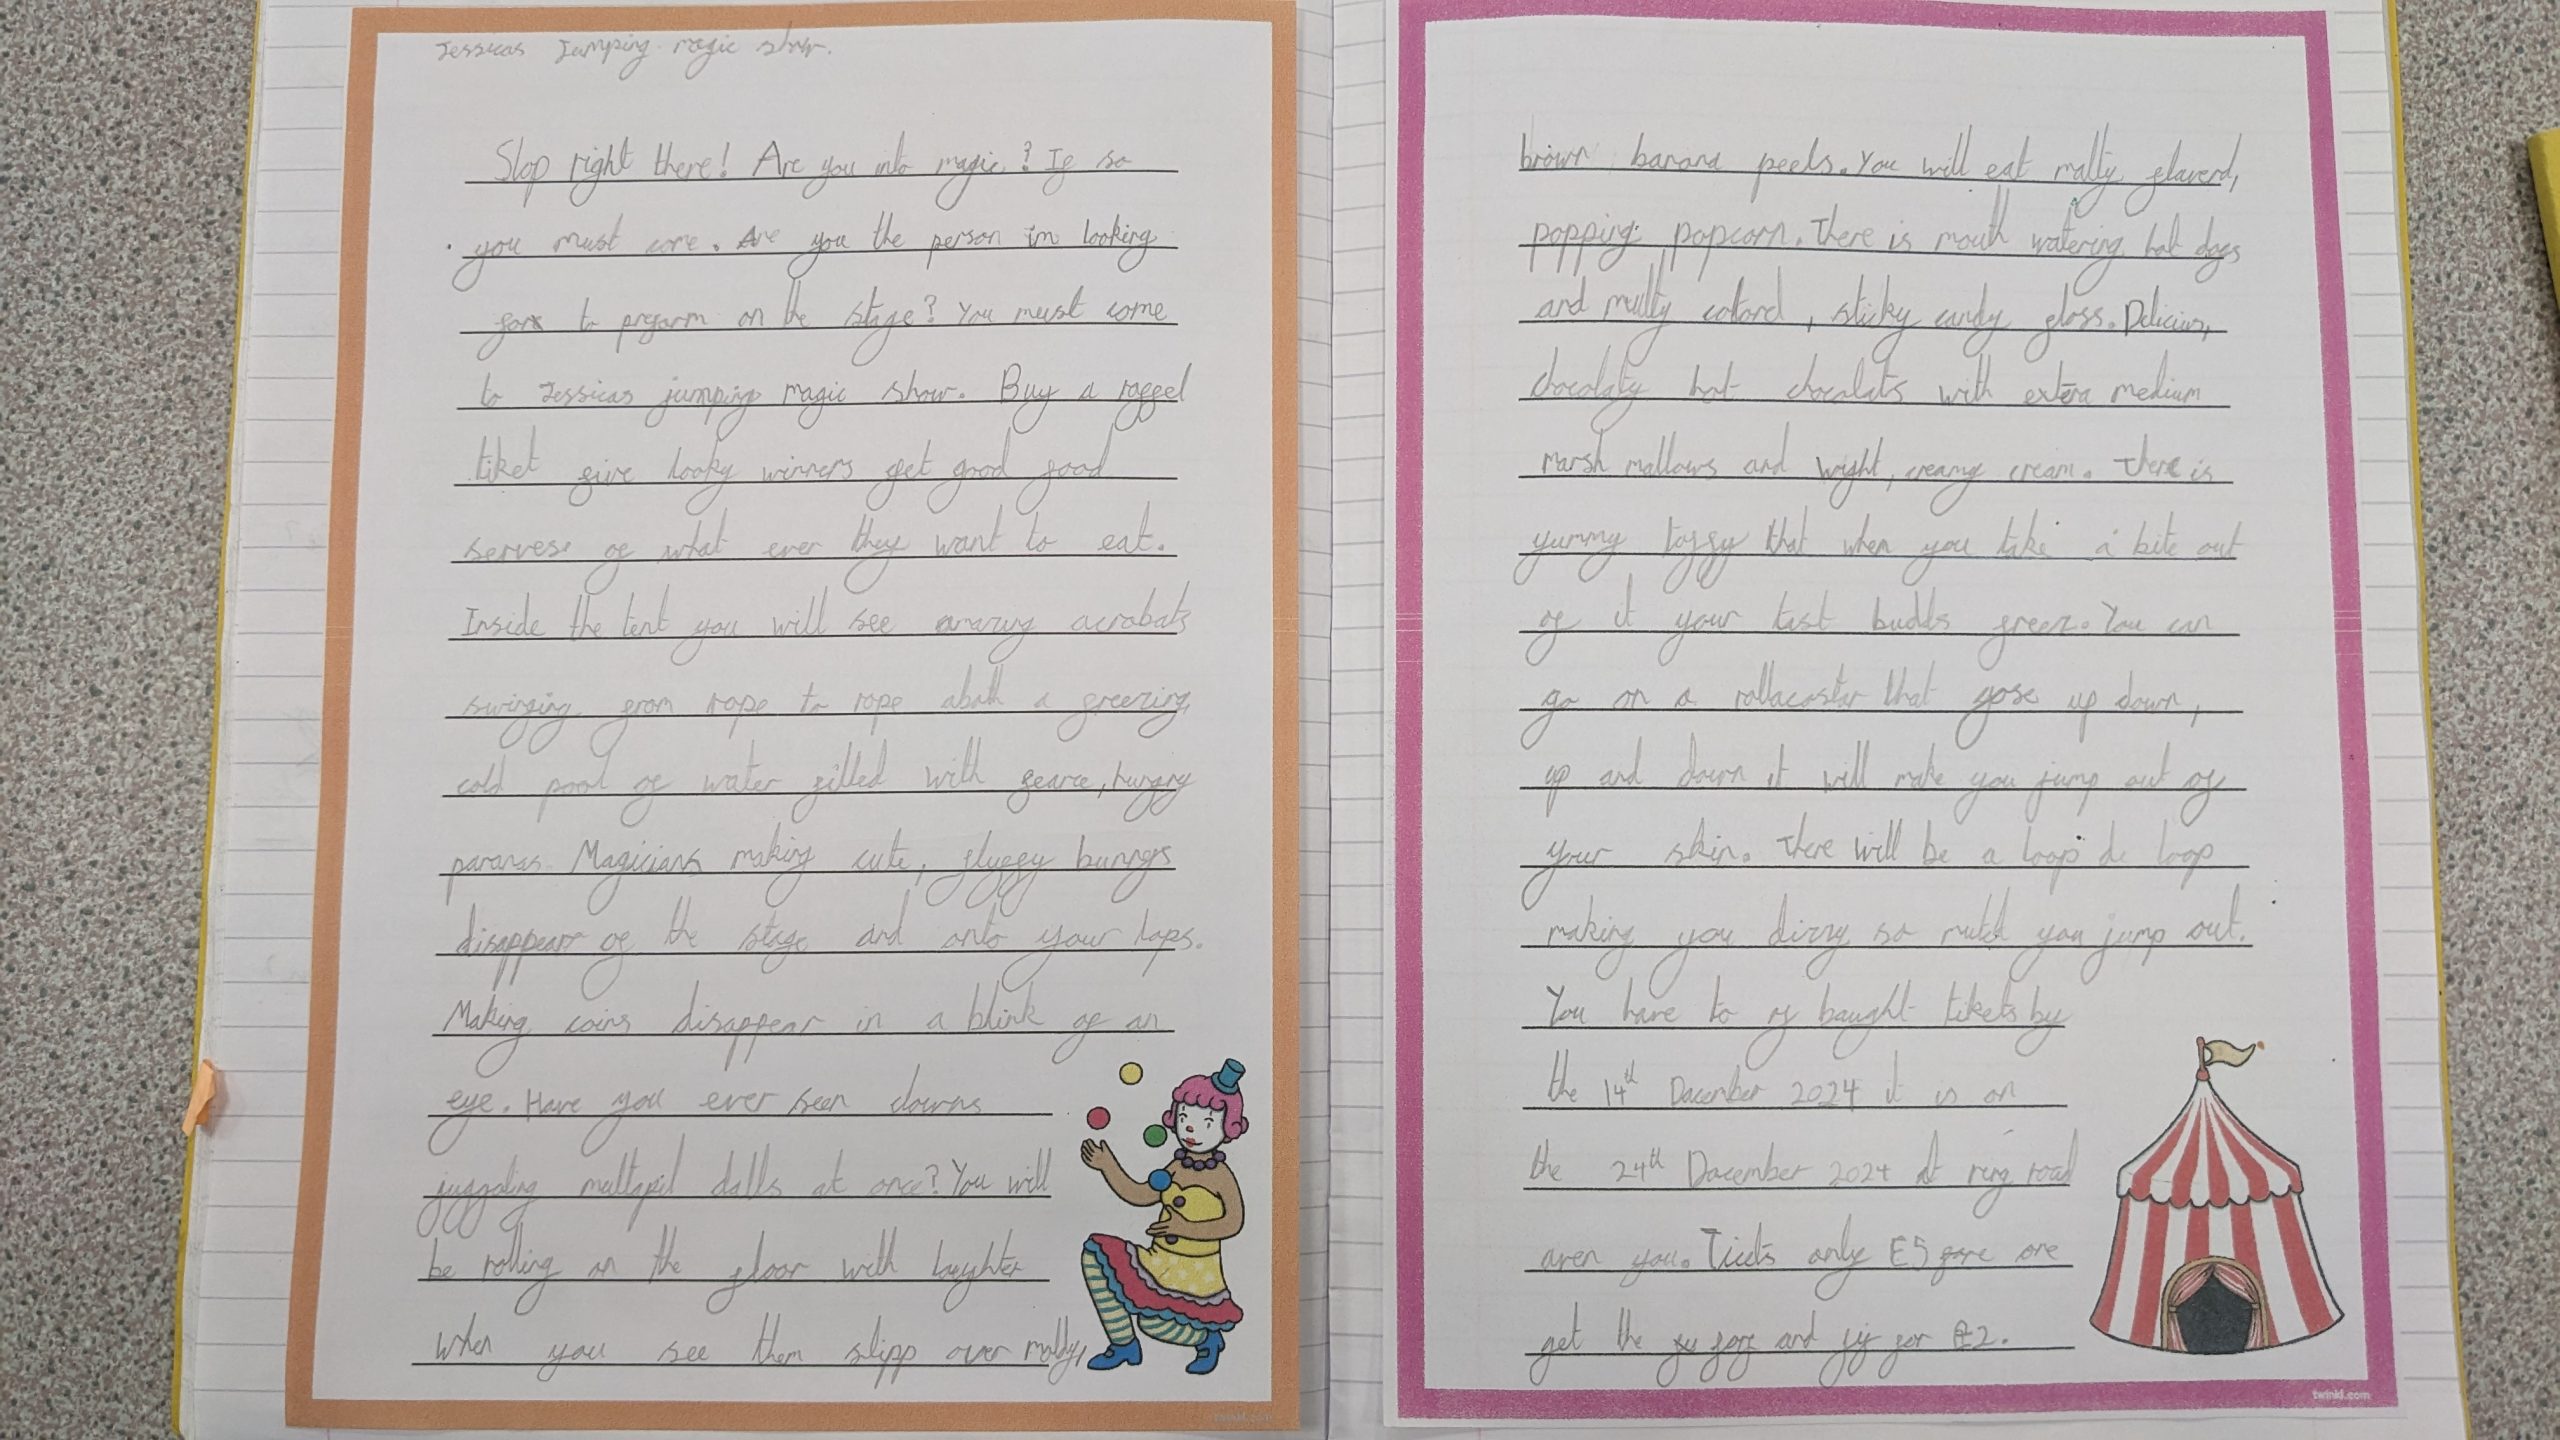 Jessicas Jumping magic show.
Stop right there! Are you into magic? If so
you must come. Are you the person im looking
for to preform on the stage? You must come
to Jessicas jumping magic show. Buy a raffel
tiket five looky winners get good food
serves of what ever they want to eat.
Inside the tent you will see amazing acrobats
swinging from rope to rope abath a freezing,
cold pool of water filled with fearce, hungry
pararas. Magicians making cute, fluffy bunnys
disappear of the stage and onto your laps.
Making coins disappear in a blink of an
eye. Have you ever seen clowns
juggaling multapil balls at once? You will
be rolling on the floor with laughter
when you see them slipp over moldy,
brown banana peels. You will eat malty flaverd,
popping popcorn. There is mouth watering hot dogs
and multy colord, sticky candy floss. Delicius,
chocolaty hot chocolats with extera medium
marsh mallows and wight, creamy cream. There is
yummy toffy that when you take a bite out
of it your tast budds freez. You can
go on a rollacostar that gose up down,
up and down it will make you jump out of
your skin. There will be a loop de loop
making you dizzy so mutch you jump out.
You have to of baught tikets by
the 14th Dacember 2024 it is on
the 24th Dacember 2024 at ring road
aren you. Ticets only £5 fore one
get the and for £2.
twinkl.com
twinkl.com